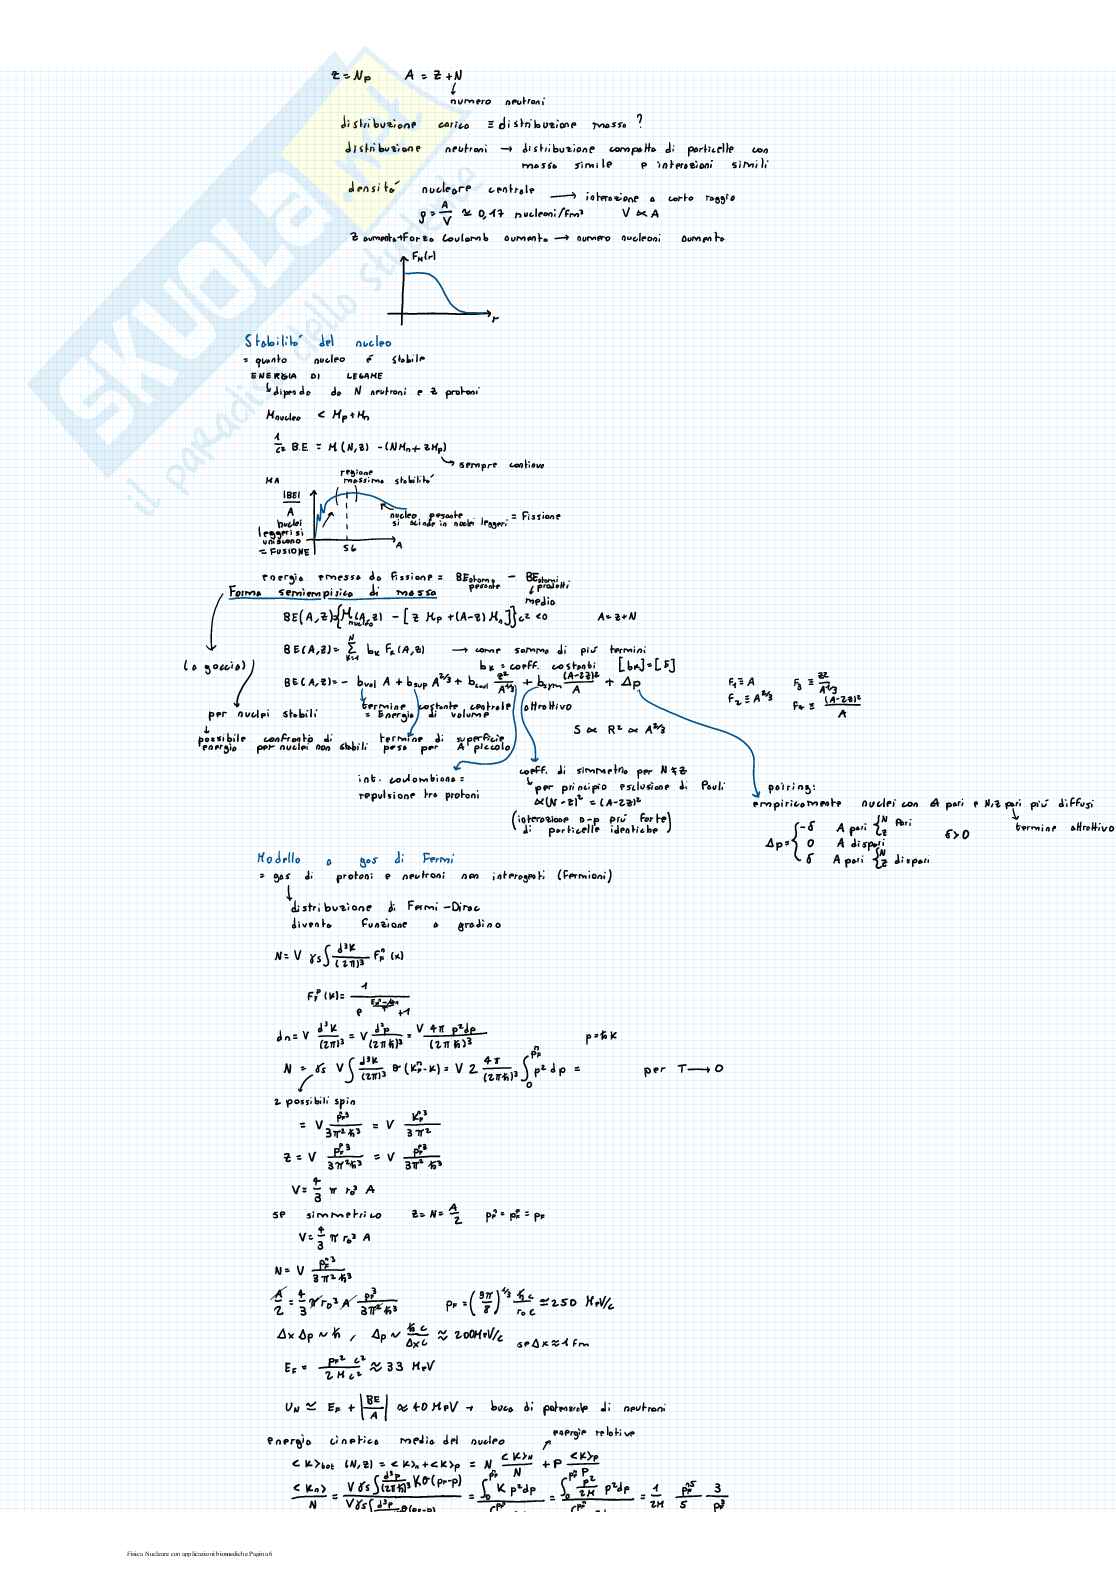 SKUOLA.net
il paradiso dello studente
Z = Np   A = Z + N
numero neutroni
distribuzione carica ≡ distribuzione massa ?
distribuzione neutroni → distribuzione compatta di particelle con
massa simile e interazioni simili
densitá nucleare centrale → interazione a corto raggio
ρ = A/V ≃ 0,17 nucleoni/fm³   V ∝ A
Z aumenta → Forza Coulomb aumenta → numero nucleoni aumenta
F_N(r)
r
Stabilitá del nucleo
= quanto nucleo é stabile
ENERGIA DI LEGAME
↳ dipende da N neutroni e Z protoni
M_nucleo < Mp + Mn
1/c² BE = M(N,Z) - (NMn + ZMp)
→ sempre continuo
MA
regione
massima stabilitá
|BE|/A
nuclei
leggeri si
uniscono
= FUSIONE
nucleo pesante
si scinde in nuclei leggeri = Fissione
56
A
energia emessa da fissione = BE atomo pesante - BE atomi prodotti
medio
Forma semiempirica di massa
BE(A,Z) = {M nucleo (A,Z) - [Z Mp + (A-Z) Mn]} c² < 0   A = Z + N
BE(A,Z) = Σ_{k=1}^{N} bk Fk(A,Z) → come somma di piú termini
bk = coeff. costanti   [bk] = [E]
(a goccia)
BE(A,Z) = - b_vol A + b_sup A^{2/3} + b_coul Z²/A^{1/3} + b_sym (A-2Z)²/A + Δp
F1 ≡ A   F3 ≡ Z²/A^{1/3}
F2 ≡ A^{2/3}   F4 ≡ (A-2Z)²/A
termine costante centrale attrattivo
= Energia di volume
per nuclei stabili
S ∝ R² ∝ A^{2/3}
possibile confronto di
energia per nuclei non stabili
termine di superficie
pesa per A piccolo
int. coulombiana =
repulsione tra protoni
coeff. di simmetria per N ≠ Z
↳ per principio esclusione di Pauli
∝ (N-Z)² = (A-2Z)²
(interazione n-p piú forte
di particelle identiche)
pairing:
empiricamente nuclei con A pari e N,Z pari piú diffusi
termine attrattivo
Δp = { -δ A pari {N Z pari
0 A dispari
δ A pari {N Z dispari
δ > 0
Modello a gas di Fermi
= gas di protoni e neutroni non interagenti (fermioni)
distribuzione di Fermi-Dirac
diventa funzione a gradino
N = V γs ∫ d³k/(2π)³ F_F^n (k)
dn = V d³k/(2π)³ = V d³p/(2πħ)³ = V 4π p² dp/(2πħ)³   p = ħk
N = γs V ∫ d³k/(2π)³ θ(k_F^n - k) = V 2 4π/(2πħ)³ ∫_0^{p_F^n} p² dp =   per T → 0
2 possibili spin
= V p_F^{n 3}/3π²ħ³ = V k_F^{n 3}/3π²
Z = V p_F^{p 3}/3π²ħ³ = V p_F^{p 3}/3π²ħ³
V = 4/3 π r0³ A
se simmetrico   Z = N = A/2   p_F^n = p_F^p = p_F
V = 4/3 π r0³ A
N = V p_F^{n 3}/3π²ħ³
A/2 = 4/3 π r0³ A p_F³/3π²ħ³   p_F = (9π/8)^{1/3} ħc/r0c ≃ 250 MeV/c
Δx Δp ~ ħ ,   Δp ~ ħc/Δxc ≈ 200 MeV/c   se Δx ≈ 1 fm
E_F = p_F² c²/2Mc² ≈ 33 MeV
U_N ≃ E_F + |BE/A| ≈ 40 MeV → buca di potenziale di neutroni
energia cinetica media del nucleo
energie relative
<K>tot (N,Z) = <K>n + <K>p = N <K>N/N + P <K>p/P
<Kn>/N = V γs ∫ d³p/(2πħ)³ K θ(p_F-p) / V γs ∫ d³p θ(p_F-p) = ∫_0^{p_F^n} K p² dp = ∫_0^{p_F^n} p²/2M p² dp = 1/2M p_F^{n 5}/5 3/p_F³
Fisica Nucleare con applicazioni biomediche Pagina 6